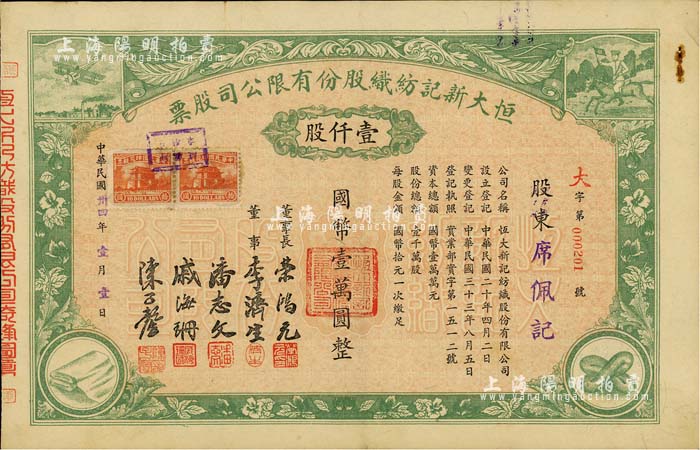 恒大新記紡織股份有限公司股票
壹仟股
大字第000201號
股東席佩記
公司名稱 恆大新記紡織股份有限公司
設立登記 中華民國二十年四月二日
變更登記 中華民國三十三年八月五日
登記執照 實業部實字第一五一二號
資本總額 國幣壹萬萬元
股份總額 壹千萬股
每股金額 國幣拾元一次繳足
國幣壹萬圓整
董事長 榮鴻元
董事 李濟生
潘志文
戚海珊
中華民國卅四年壹月壹日
上海陽明拍賣
www.yangmingauction.com
上海陽明拍賣
www.yangmingauction.com
上海陽明拍賣
www.yangmingauction.com
上海陽明拍賣
www.yangmingauction.com